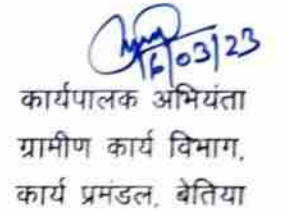 16/03/23
कार्यपालक अभियंता
ग्रामीण कार्य विभाग,
कार्य प्रमंडल, बेतिया